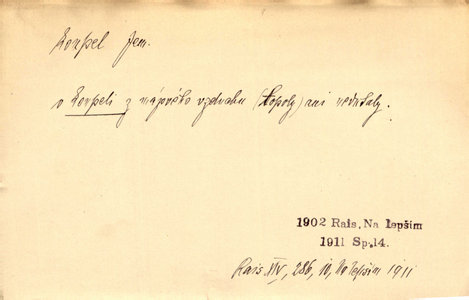 koupel fem.
v koupeli z májového vzduchu (topoly) ani nedutaly.
1902 Rais, Na lepším
1911 Sp.14.
Rais XIV, 286, 10, Na lepším 1911